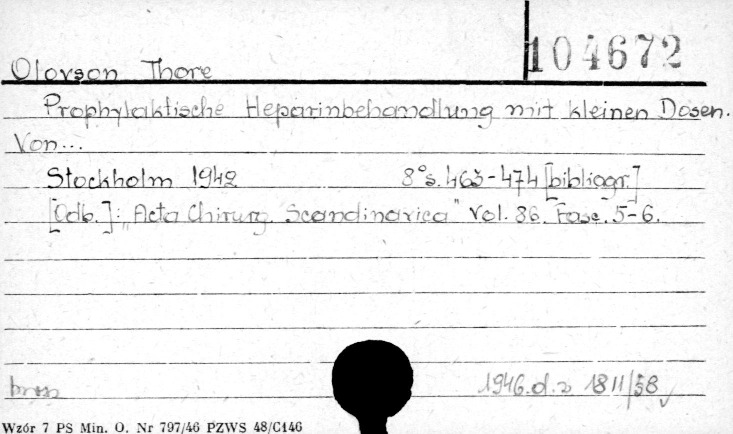 104672
Olovson Thore
Prophylaktische Heparinbehandlung mit kleinen Dosen.
Von...
Stockholm 1942 8° s. 463-474 [bibliogr.]
[Odb.]: „Acta Chirurg. Scandinavica" Vol. 86. Fasc. 5-6.
brosz
1946.d.z 1811/58
Wzór 7 PS Min. O. Nr 797/46 PZWS 48/C146